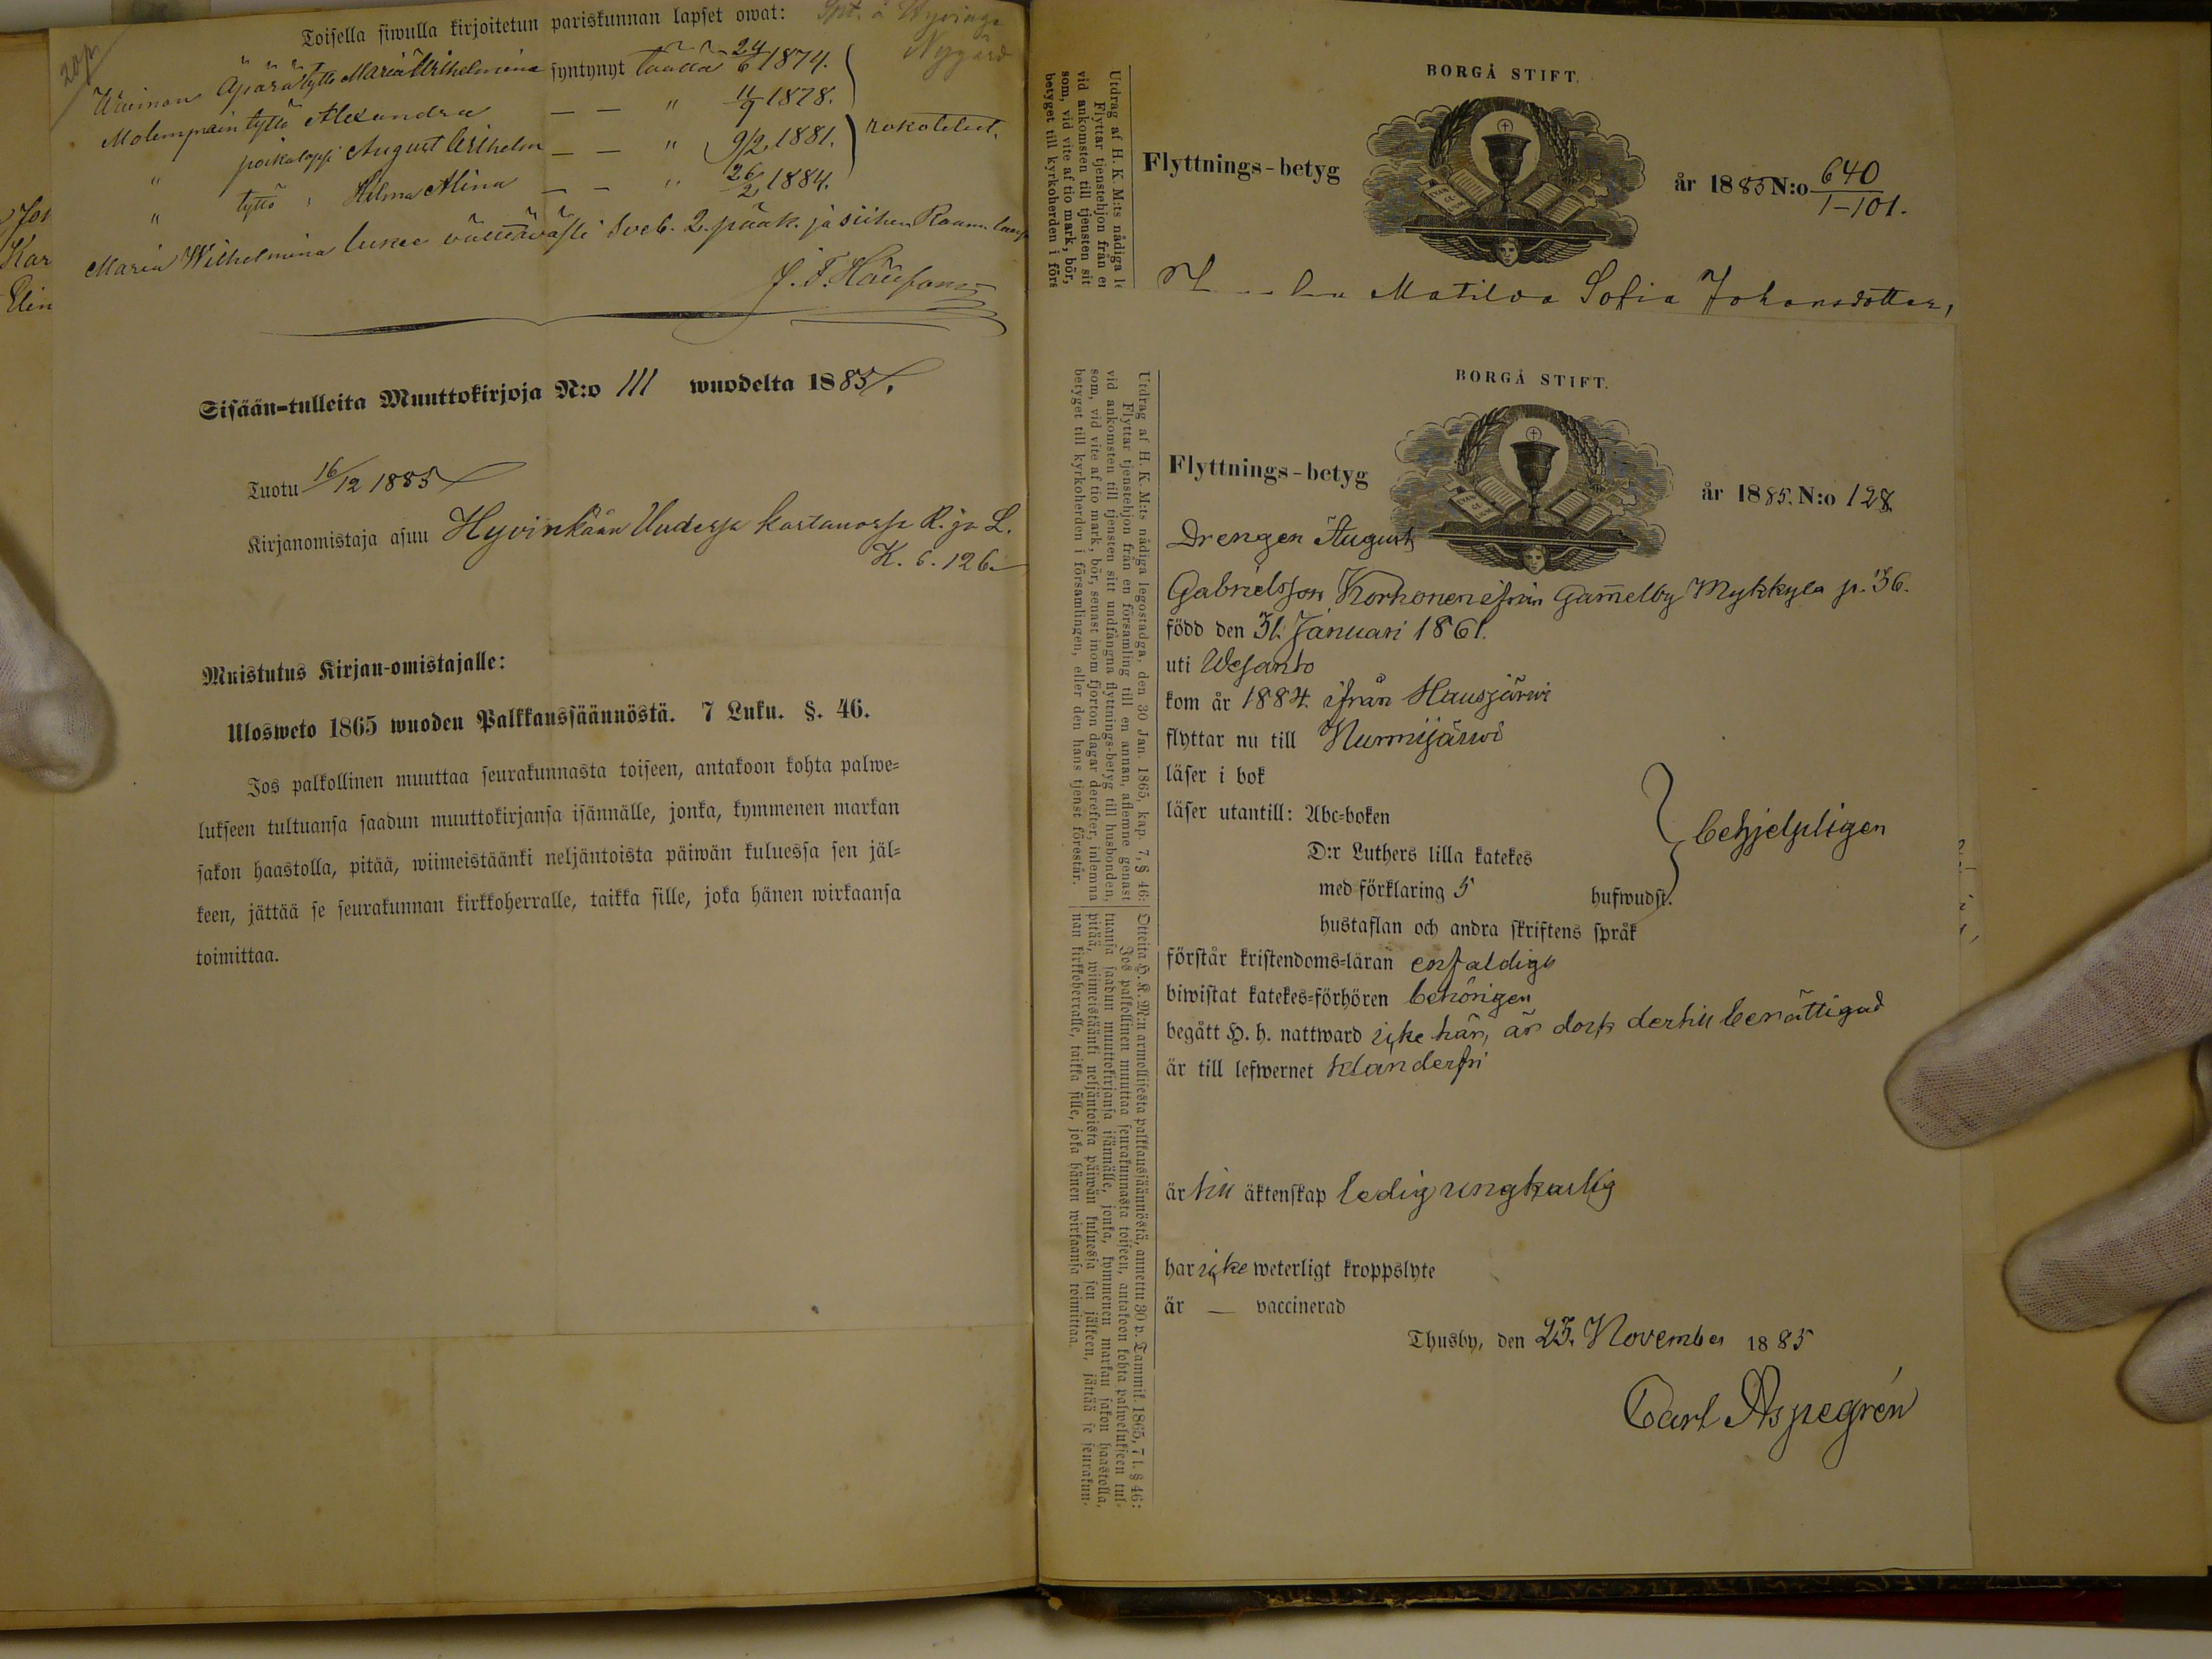 20 p
Toisella siwulla kirjoitetun pariskunnan lapset owat:
Nygård
Waimon äpärä tyttö Maria Wilhelmina syntynyt täällä 24/6 1874.
Molempain tyttö Alexandra — — " 11/9 1878.
" poikalapsi August Wilhelm — — " 9/2 1881.
rokotetut.
" tyttö Hilma Alina — — " 26/2 1884.
Maria Wilhelmina lukee välttävästi 2. pääk. ja siihen
Sisään-tulleita Muuttokirjoja N:o 111 wuodelta 1885.
Tuotu 16/12 1885
Kirjanomistaja asuu Hyvinkään Uudessa kartanossa R. ja L.
K. s. 126.
Muistutus Kirjan-omistajalle:
Ulosweto 1865 wuoden Palkkaussäännöstä. 7 Luku. §. 46.
Jos palkollinen muuttaa seurakunnasta toiseen, antakoon kohta palwe-
lukseen tultuansa saadun muuttokirjansa isännälle, jonka, kymmenen markan
sakon haastolla, pitää, wiimeistäänki neljäntoista päiwän kuluessa sen jäl-
keen, jättää se seurakunnan kirkkoherralle, taikka sille, joka hänen wirkaansa
toimittaa.
Jos
Kar
Elin
BORGÅ STIFT.
Flyttnings-betyg
år 1885 N:o 640
1-101.
Matilda Sofia Johansdotter,
Utdrag af H. K. M:ts nådiga le
Flyttar tjenstehjon från en
vid ankomsten till tjensten sit
som, vid vite af tio mark, bör,
betyget till kyrkoherden i förs
BORGÅ STIFT.
Flyttnings-betyg
år 1885. N:o 128
Drengen August
Gabrielsson Korhonen ifrån Gammelby Mykkylä p. 36.
född den 31. Januari 1861.
uti Wesanto
kom år 1884. ifrån Hausjärwi
flyttar nu till Nurmijärwi
läser i bok
läser utantill: Abc-boken
behjelpligen
D:r Luthers lilla katekes
med förklaring 5 hufwudst.
hustaflan och andra skriftens språk
förstår kristendoms-läran enfaldigt
biwistat katekes-förhören behörigen
begått H. h. nattward icke här, är dock dertill berättigad
är till lefwernet klanderfri
är till äktenskap ledig ungkarlig
har icke weterligt kroppslyte
är — vaccinerad
Thusby, den 25. November 1885
Carl Aspegrén
Utdrag af H. K. M:ts nådiga legostadga, den 30 Jan. 1865, kap. 7, § 46:
Flyttar tjenstehjon från en församling till en annan, aflemne genast
vid ankomsten till tjensten sitt undfångna flyttnings-betyg till husbonden,
som, vid vite af tio mark, bör, senast inom fjorton dagar derefter, inlemna
betyget till kyrkoherden i församlingen, eller den hans tjenst förestår.
Otteita H. K. M:n armollisesta palkkaussäännöstä, annettu 30 p. Tammik. 1865, 7 l. § 46:
Jos palkollinen muuttaa seurakunnasta toiseen, antakoon kohta palwelukseen tul-
tuansa saadun muuttokirjansa isännälle, jonka, kymmenen markan sakon haastolla,
pitää, wiimeistäänki neljäntoista päiwän kuluessa sen jälkeen, jättää se seurakun-
nan kirkkoherralle, taikka sille, joka hänen wirkaansa toimittaa.